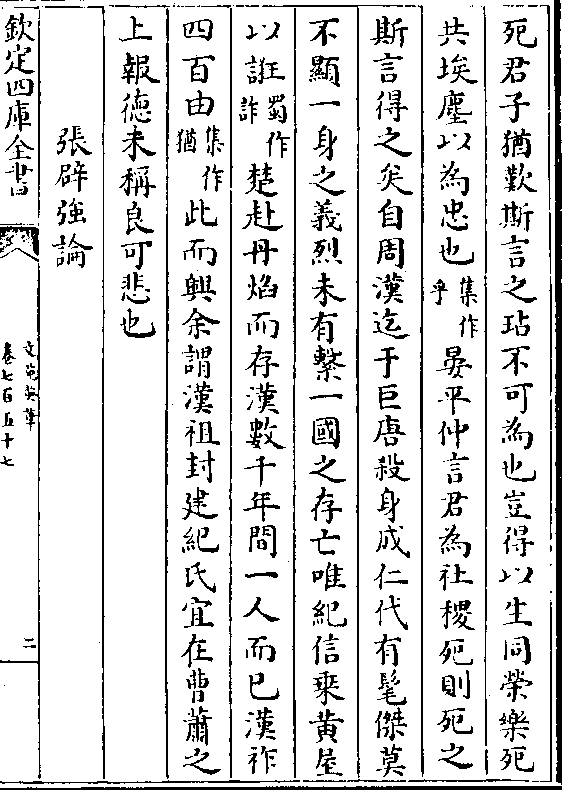 死君子猶歎斯言之玷不可為也豈得以生同榮樂死
共埃塵以為忠也集作乎晏平仲言君為社稷死則死之
斯言得之矣自周漢迄于巨唐殺身成仁代有髦傑莫
不顯一身之義烈未有繫一國之存亡唯紀信乗黄屋
以誑蜀作詐楚赴丹焰而存漢數千年間一人而已漢祚
四百由集作猶此而興余謂漢祖封建紀氏宜在曹蕭之
上報徳未稱良可悲也
張辟強論
欽定四庫全書
文苑英華
卷七百五十七
二